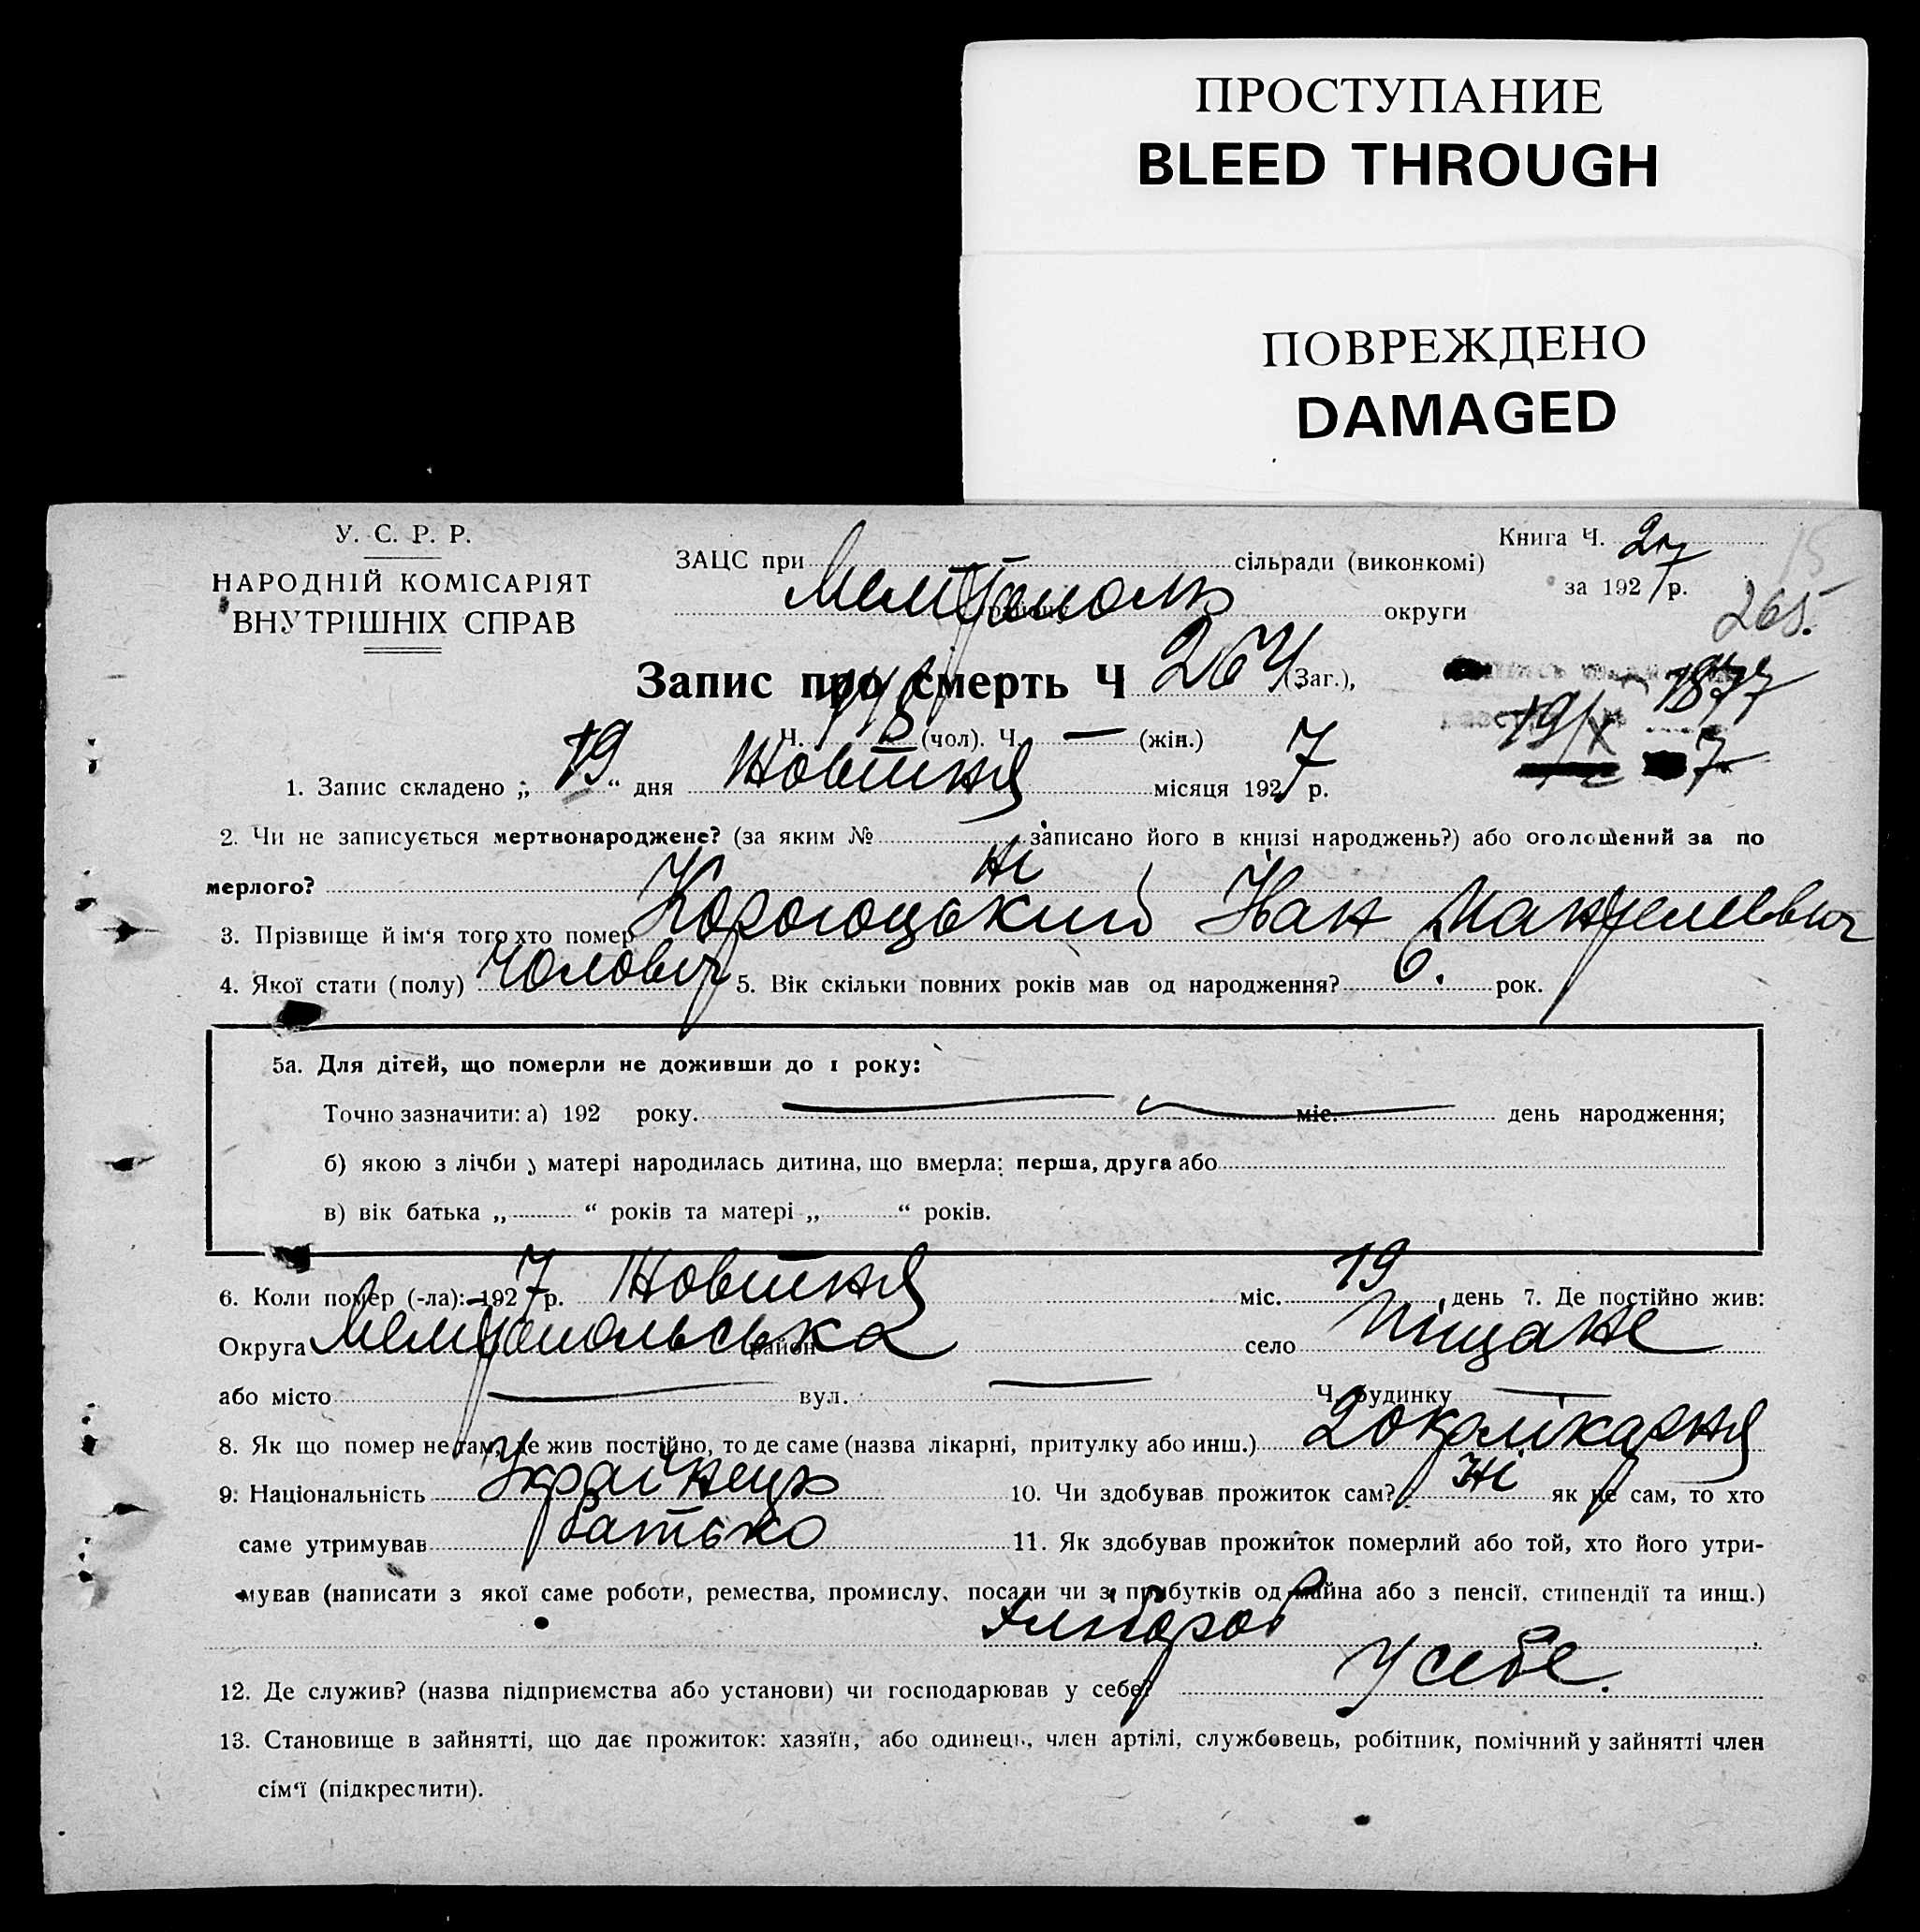 ПРОСТУПАНИЕ
BLEED THROUGH
ПОВРЕЖДЕНО
DAMAGED
У. С. Р. Р.
НАРОДНІЙ КОМІСАРІЯТ
ВНУТРІШНІХ СПРАВ
ЗАЦС при сільради (виконкомі)
Мелітополь району округи
Книга Ч. 2
за 1927 р.
265.
Запис про смерть Ч 264 (Заг.),
Ч. (чол). Ч. — (жін.)
1877
19/X
7
1. Запис складено „ 19 “ дня Жовтня місяця 1927 р.
2. Чи не записується мертвонароджене? (за яким № записано його в книзі народжень?) або оголошений за по
мерлого? Ні
3. Прізвище й ім'я того хто помер Корогоцький Іван
4. Якої стати (полу) Чоловіч 5. Вік скільки повних років мав од народження? 6. рок.
5а. Для дітей, що померли не доживши до 1 року:
Точно зазначити: а) 192 року. міс. день народження;
б) якою з лічби у матері народилась дитина, що вмерла: перша, друга або
в) вік батька „ “ років та матері „ “ років.
6. Коли помер (-ла): 1927 р. Жовтня міс. 19 день 7. Де постійно жив:
Округа Мелітопольська район село Піщане
або місто — вул. — Ч. будинку —
8. Як що помер не там, де жив постійно, то де саме (назва лікарні, притулку або инш.) 2 окрлікарня
9. Національність Українець 10. Чи здобував прожиток сам? Ні як не сам, то хто
саме утримував батько 11. Як здобував прожиток померлий або той, хто його утри-
мував (написати з якої саме роботи, ремества, промислу, посади чи з прибутків од майна або з пенсії, стипендії та инш.)
Хлібороб
12. Де служив? (назва підприємства або установи) чи господарював у себе? У себе.
13. Становище в зайнятті, що дає прожиток: хазяїн, або одинець, член артілі, службовець, робітник, помічний у зайнятті член
сім'ї (підкреслити).